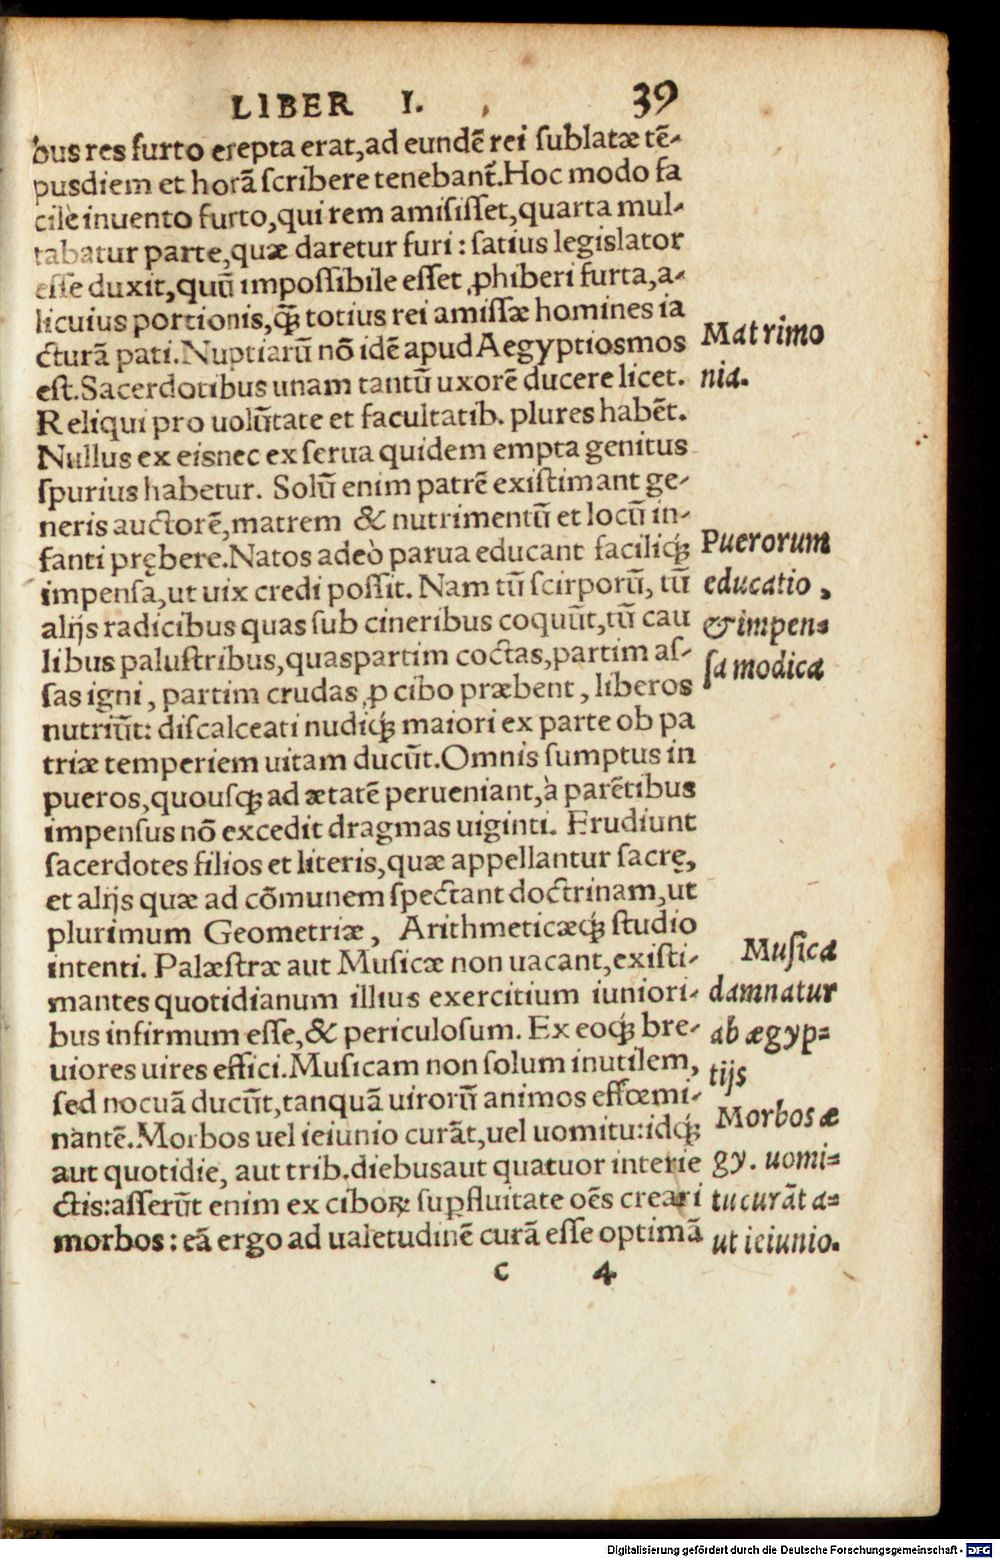 LIBER I. 39
bus res furto erepta erat,ad eundē rei ſublatæ tē-
pusdiem et horã ſcribere tenebant̃.Hoc modo fa
cilè inuento furto,qui rem amiſiſſet,quarta mul-
tabatur parte,quæ daretur furi: ſatius legislator
eſſe duxit,quũ impoſſibile eſſet ꝓhiberi furta,a-
licuius portionis,q̃ꝫ totius rei amiſſæ homines ia
cturã pati.Nuptiarũ nõ idē apud Aegyptiosmos
eſt.Sacerdotibus unam tantũ uxorē ducere licet.
Reliqui pro uolũtate et facultatib. plures habẽt.
Nullus ex eisnec ex ſerua quidem empta genitus
ſpurius habetur. Solũ enim patrē exiſtimant ge-
neris auctorē,matrem & nutrimentũ et locũ in-
fanti prębere.Natos adeò parua educant faciliqꝫ
impenſa,ut uix credi poſſit. Nam tũ ſcirporũ, tũ
alijs radicibus quas ſub cineribus coquũt,tũ cau
libus paluſtribus,quaspartim coctas,partim aſ-
ſas igni, partim crudas ꝓ cibo præbent, liberos
nutriũt: diſcalceati nudiqꝫ maiori ex parte ob pa
triæ temperiem uitam ducũt.Omnis ſumptus in
pueros,quouſqꝫ ad ætatē perueniant,à parẽtibus
impenſus nõ excedit dragmas uiginti. Erudiunt
ſacerdotes filios et literis,quæ appellantur ſacrę,
et alijs quæ ad cõmunem ſpectant doctrinam,ut
plurimum Geometriæ, Arithmeticæqꝫ ſtudio
intenti. Palæſtræ aut Muſicæ non uacant,exiſti-
mantes quotidianum illius exercitium iuniori-
bus infirmum eſſe,& periculoſum. Ex eoqꝫ bre-
uiores uires effici.Muſicam non ſolum inutilem,
ſed nocuã ducũt,tanquã uirorũ animos effœmi-
nantē.Morbos uel ieiunio curãt,uel uomitu:idqꝫ
aut quotidie, aut trib.diebusaut quatuor interie
ctis:aſſerũt enim ex ciboꝝ ſuꝑfluitate oẽs creari
morbos: eã ergo ad ualetudinē curã eſſe optimã
c 4
Matrimo
nia.
Puerorum
educatio,
& impen=
ſa modica
Muſica
damnatur
ab ægyp=
tijs
Morbos æ
gy. uomi=
tu curãt a=
ut ieiunio.
Digitalisierung gefördert durch die Deutsche Forschungsgemeinschaft - DFG